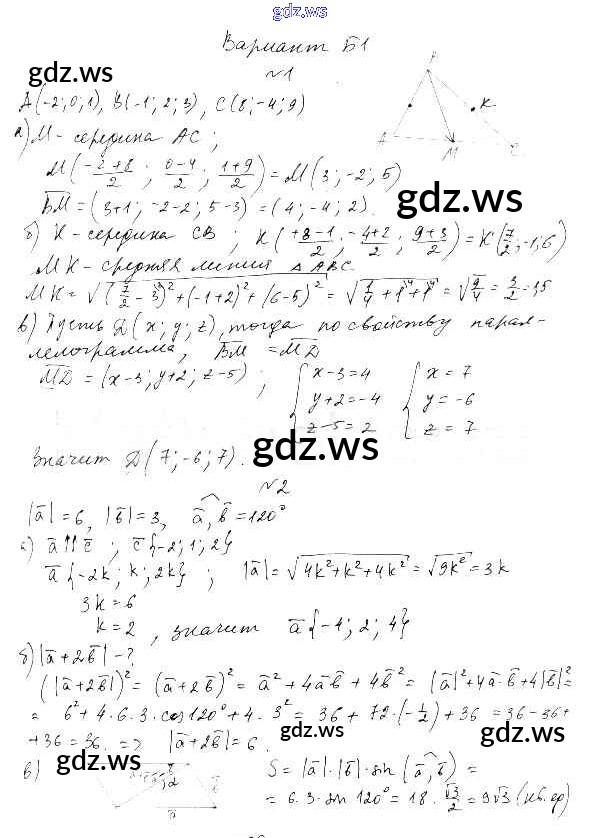 gdz.ws
Вариант Б1
№1
A(-2; 0; 1), B(-1; 2; 3), C(8; -4; 9)
а) M - середина AC;
M((-2+8)/2; (0-4)/2; (1+9)/2) = M(3; -2; 5)
BM = (3+1; -2-2; 5-3) = (4; -4; 2).
б) K - середина CB; K((+8-1)/2; (-4+2)/2; (9+3)/2) = K(7/2; -1; 6)
MK - средняя линия △ ABC.
MK = √((7/2 - 3)² + (-1+2)² + (6-5)²) = √(1/4 + 1 + 1) = √(9/4) = 3/2 = 1,5
в) Пусть D(x; y; z), тогда по свойству парал-
лелограмма, BM = MD
MD = (x-3; y+2; z-5); { x-3=4 { x=7
y+2=-4 y=-6
z-5=2 z=7
Значит D(7; -6; 7).
№2
|a|=6, |b|=3, a, b = 120°
а) a↑↑c; c{-2; 1; 2}
a{-2k; k; 2k}; |a| = √(4k²+k²+4k²) = √(9k²) = 3k
3k=6
k=2, значит a{-4; 2; 4}
б) |a+2b| - ?
(|a+2b|)² = (a+2b)² = a² + 4ab + 4b² = |a|² + 4a·b + 4|b|² =
= 6² + 4·6·3·cos120° + 4·3² = 36 + 72·(-1/2) + 36 = 36-36+
+36=36. => |a+2b|=6.
в) S = |a|·|b|·sin(a, b) =
= 6·3·sin 120° = 18·√3/2 = 9√3 (кв. ед)
A
M
C
K
gdz.ws
gdz.ws
gdz.ws
gdz.ws
gdz.ws
gdz.ws
gdz.ws
gdz.ws